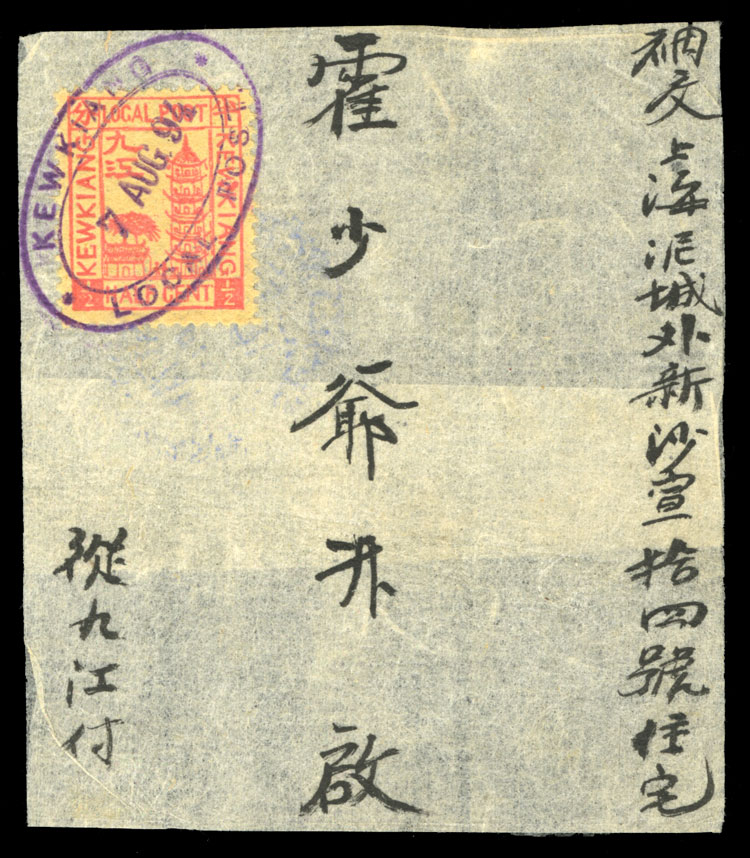 㧢交上海泥城外新沙宣拾四號住宅
霍少爺升啟
從九江付
LOCAL POST
KEWKIANG
九江
KEWKIANG
HALF CENT
1/2
1/2
KEWKIANG
LOCAL POST
7 AUG. 94